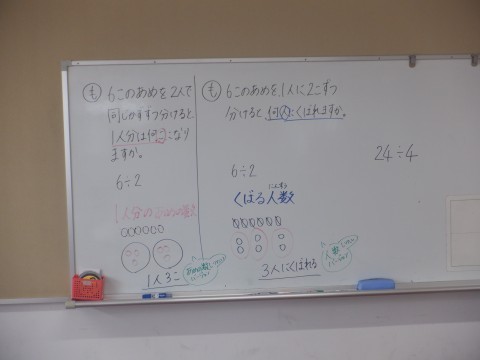 も 6このあめを2人で
同じかずずつ分けると
1人分は何こになり
ますか。
6÷2
1人分の
1人3こ
も 6このあめを1人に2こずつ
分けると、何人にくばれますか。
6÷2
にんずう
くばる人数
3人にくばれる
24÷4